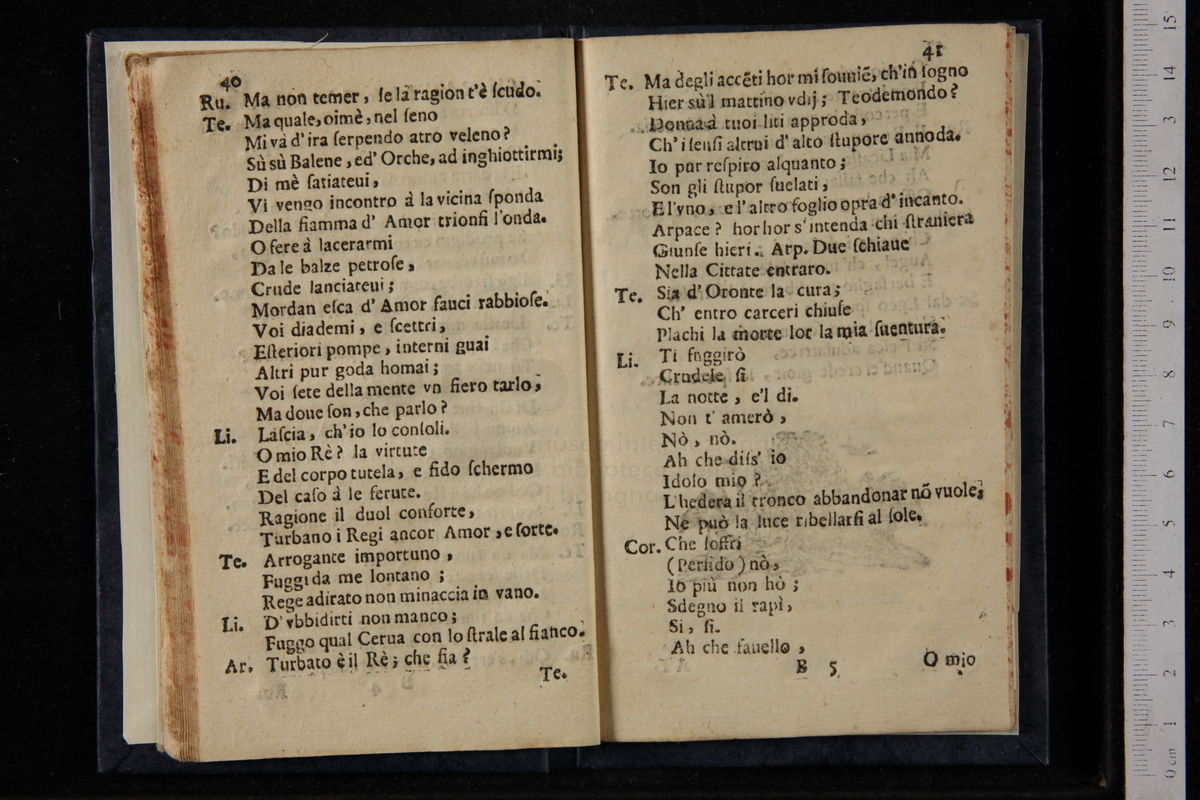 40
Ru. Ma non temer, se la ragion t'è scudo.
Te. Ma quale, oimè, nel seno
Mi và d'ira serpendo atro veleno?
Sù sù Balene, ed' Orche, ad inghiottirmi;
Di mè satiateui,
Vi vengo incontro à la vicina sponda
Della fiamma d' Amor trionfi l'onda.
O fere à lacerarmi
Da le balze petrose,
Crude lanciateui;
Mordan esca d' Amor fauci rabbiose.
Voi diademi, e scettri,
Esteriori pompe, interni guai
Altri pur goda homai;
Voi sete della mente vn fiero tarlo,
Ma doue son, che parlo?
Li. Lascia, ch'io lo consoli.
O mio Rè? la virtute
E del corpo tutela, e fido schermo
Del caso à le ferute.
Ragione il duol conforte,
Turbano i Regi ancor Amor, e sorte.
Te. Arrogante importuno,
Fuggi da me lontano;
Rege adirato non minaccia in vano.
Li. D'vbbidirti non manco;
Fuggo qual Cerua con lo strale al fianco.
Ar. Turbato è il Rè; che fia?
Te.
41
Te. Ma degli accēti hor mi souuiē, ch'in sogno
Hier sù'l mattino vdij; Teodemondo?
Donna à tuoi liti approda,
Ch' i sensi altrui d'alto stupore annoda.
Io pur respiro alquanto;
Son gli stupor suelati,
E l'vno, e l'altro foglio opra d'incanto.
Arpace? hor hor s'intenda chi straniera
Giunse hieri. Arp. Due schiaue
Nella Cittate entraro.
Te. Sia d' Oronte la cura;
Ch' entro carceri chiuse
Plachi la morte lor la mia suentura.
Li. Ti fuggirò
Crudele sì
La notte, e'l dì.
Non t' amerò,
Nò, nò.
Ah che diss' io
Idolo mio?
L'hedera il tronco abbandonar nō vuole;
Ne può la luce ribellarsi al sole.
Cor. Che soffri
(Perfido) nò,
Io più non hò;
Sdegno il rapì,
Si, si.
Ah che fauello,
B 5
O mio